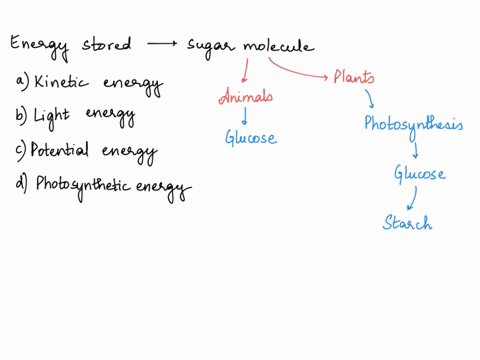 Energy stored → sugar molecule
a) Kinetic energy
b) Light energy
c) Potential energy
d) Photosynthetic energy
Animals
Glucose
Plants
Photosynthesis
Glucose
Starch